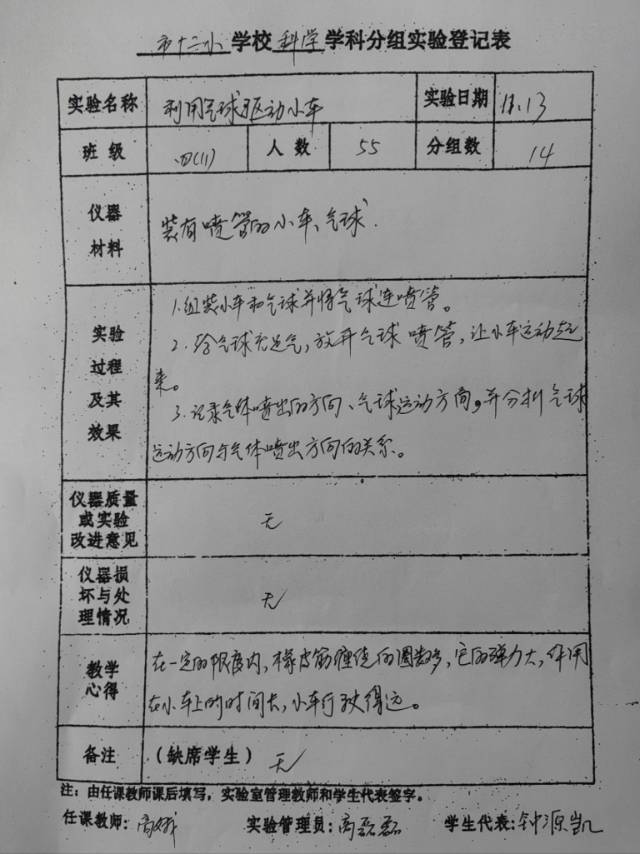 市十二小 学校 科学 学科分组实验登记表
实验名称 利用气球驱动小车 实验日期 11.13
班 级 四(11) 人 数 55 分组数 14
仪器材料 装有喷管的小车、气球.
实验过程及其效果
1.组装小车和气球并将气球连喷管。
2.给气球充足气,放开气球喷管,让小车运动起
来。
3.记录气体喷出的方向、气球运动方向,并分析气球
运动方向与气体喷出方向的关系。
仪器质量或实验改进意见 无
仪器损坏与处理情况 无
教学心得
在一定的限度内,橡皮筋缠绕的圈数多,它的弹力大,作用
在小车上的时间长,小车行驶得远。
备注 (缺席学生) 无
注:由任课教师课后填写,实验室管理教师和学生代表签字。
任课教师: 高 实验管理员:高磊磊 学生代表:钟源凯